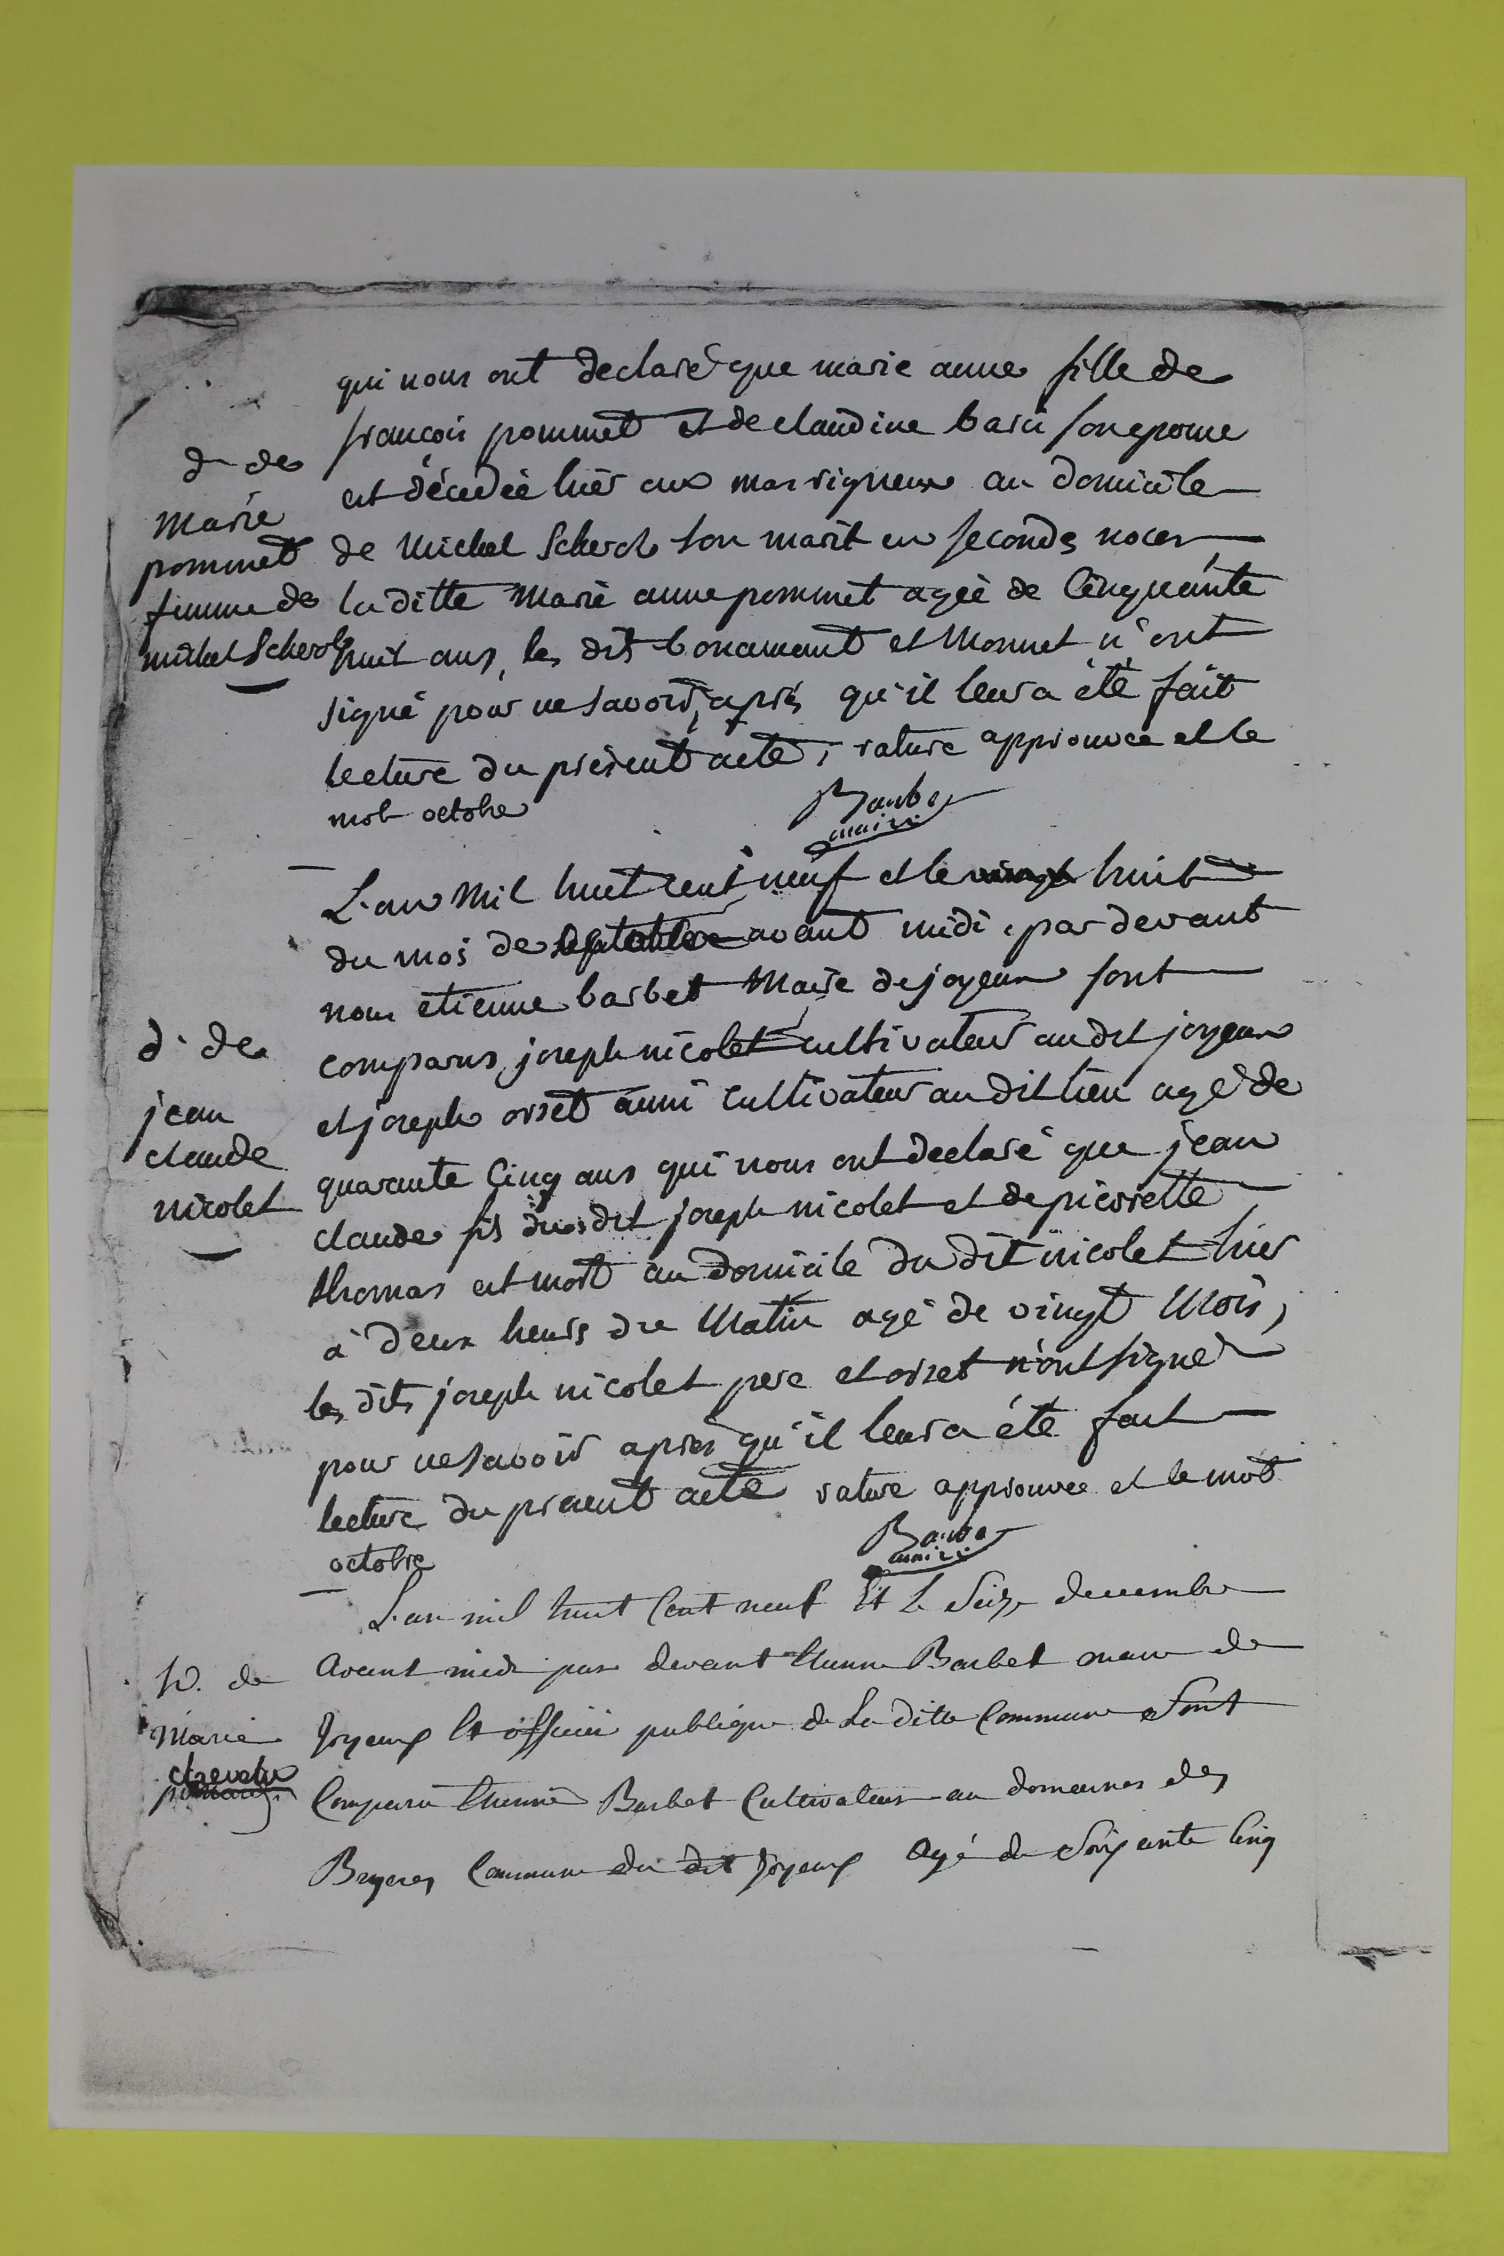 qui nous ont declaré que marie anne fille de
francois pommet et de claudine son epouse
d de
est décedée hier aux au domicile
marie
pommet
de Michel Scherol son marit en seconds noces
femme de
la ditte Marie anne pommet agée de Cinquante
michel Scherol
huit ans, les dits bonamant et Monnet n'ont
signé pour ne savoir, après qu'il leur a été fait
lecture du présent acte, rature approuvée et le
mot octobre
Barbet
maire
L'an Mil huit cent neuf et le vingt huit
du mois de septembre avant midi, par devant
nous etienne barbet Maire de joyeux sont
d. de
comparus, joseph nicolet cultivateur au dit joyeux
jean
et joseph orset aussi Cultivateur au dit lieu agé de
claude
quarante Cinq ans qui nous ont declaré que jean
nicolet
claude fils du dit joseph nicolet et de pierrette
thomas est mort au domicile du dit nicolet hier
à deux heurs du Matin agé de vingt Mois,
les dits joseph nicolet pere et orset n'ont signé
pour ne savoir apres qu'il leur a été fait
lecture du present acte rature approuvee et le mot
octobre
Barbet
maire
L'an mil huit Cent neuf Et le Seize decembre
D. de
Avant midi par devant Etienne Barbet maire de
Marie
Joyeux Et officier publique de La ditte Commune Sont
chevalier
Comparu Etienne Barbet Cultivateur au domaines des
Bruyeres Commune du dit Joyeux Agé de Soixante Cinq